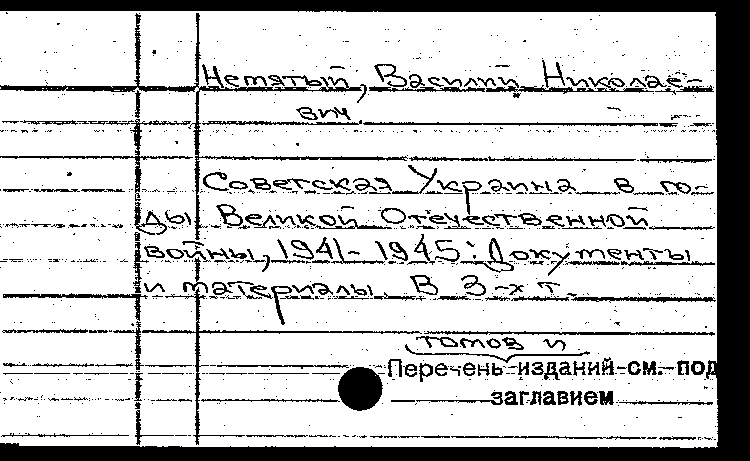 Немятый, Василий Николае-
вич.
Советская Украина в го-
ды Великой Отечественной
войны, 1941-1945: Документы
и материалы. В 3-х т.
томов и
Перечень изданий см. под
заглавием